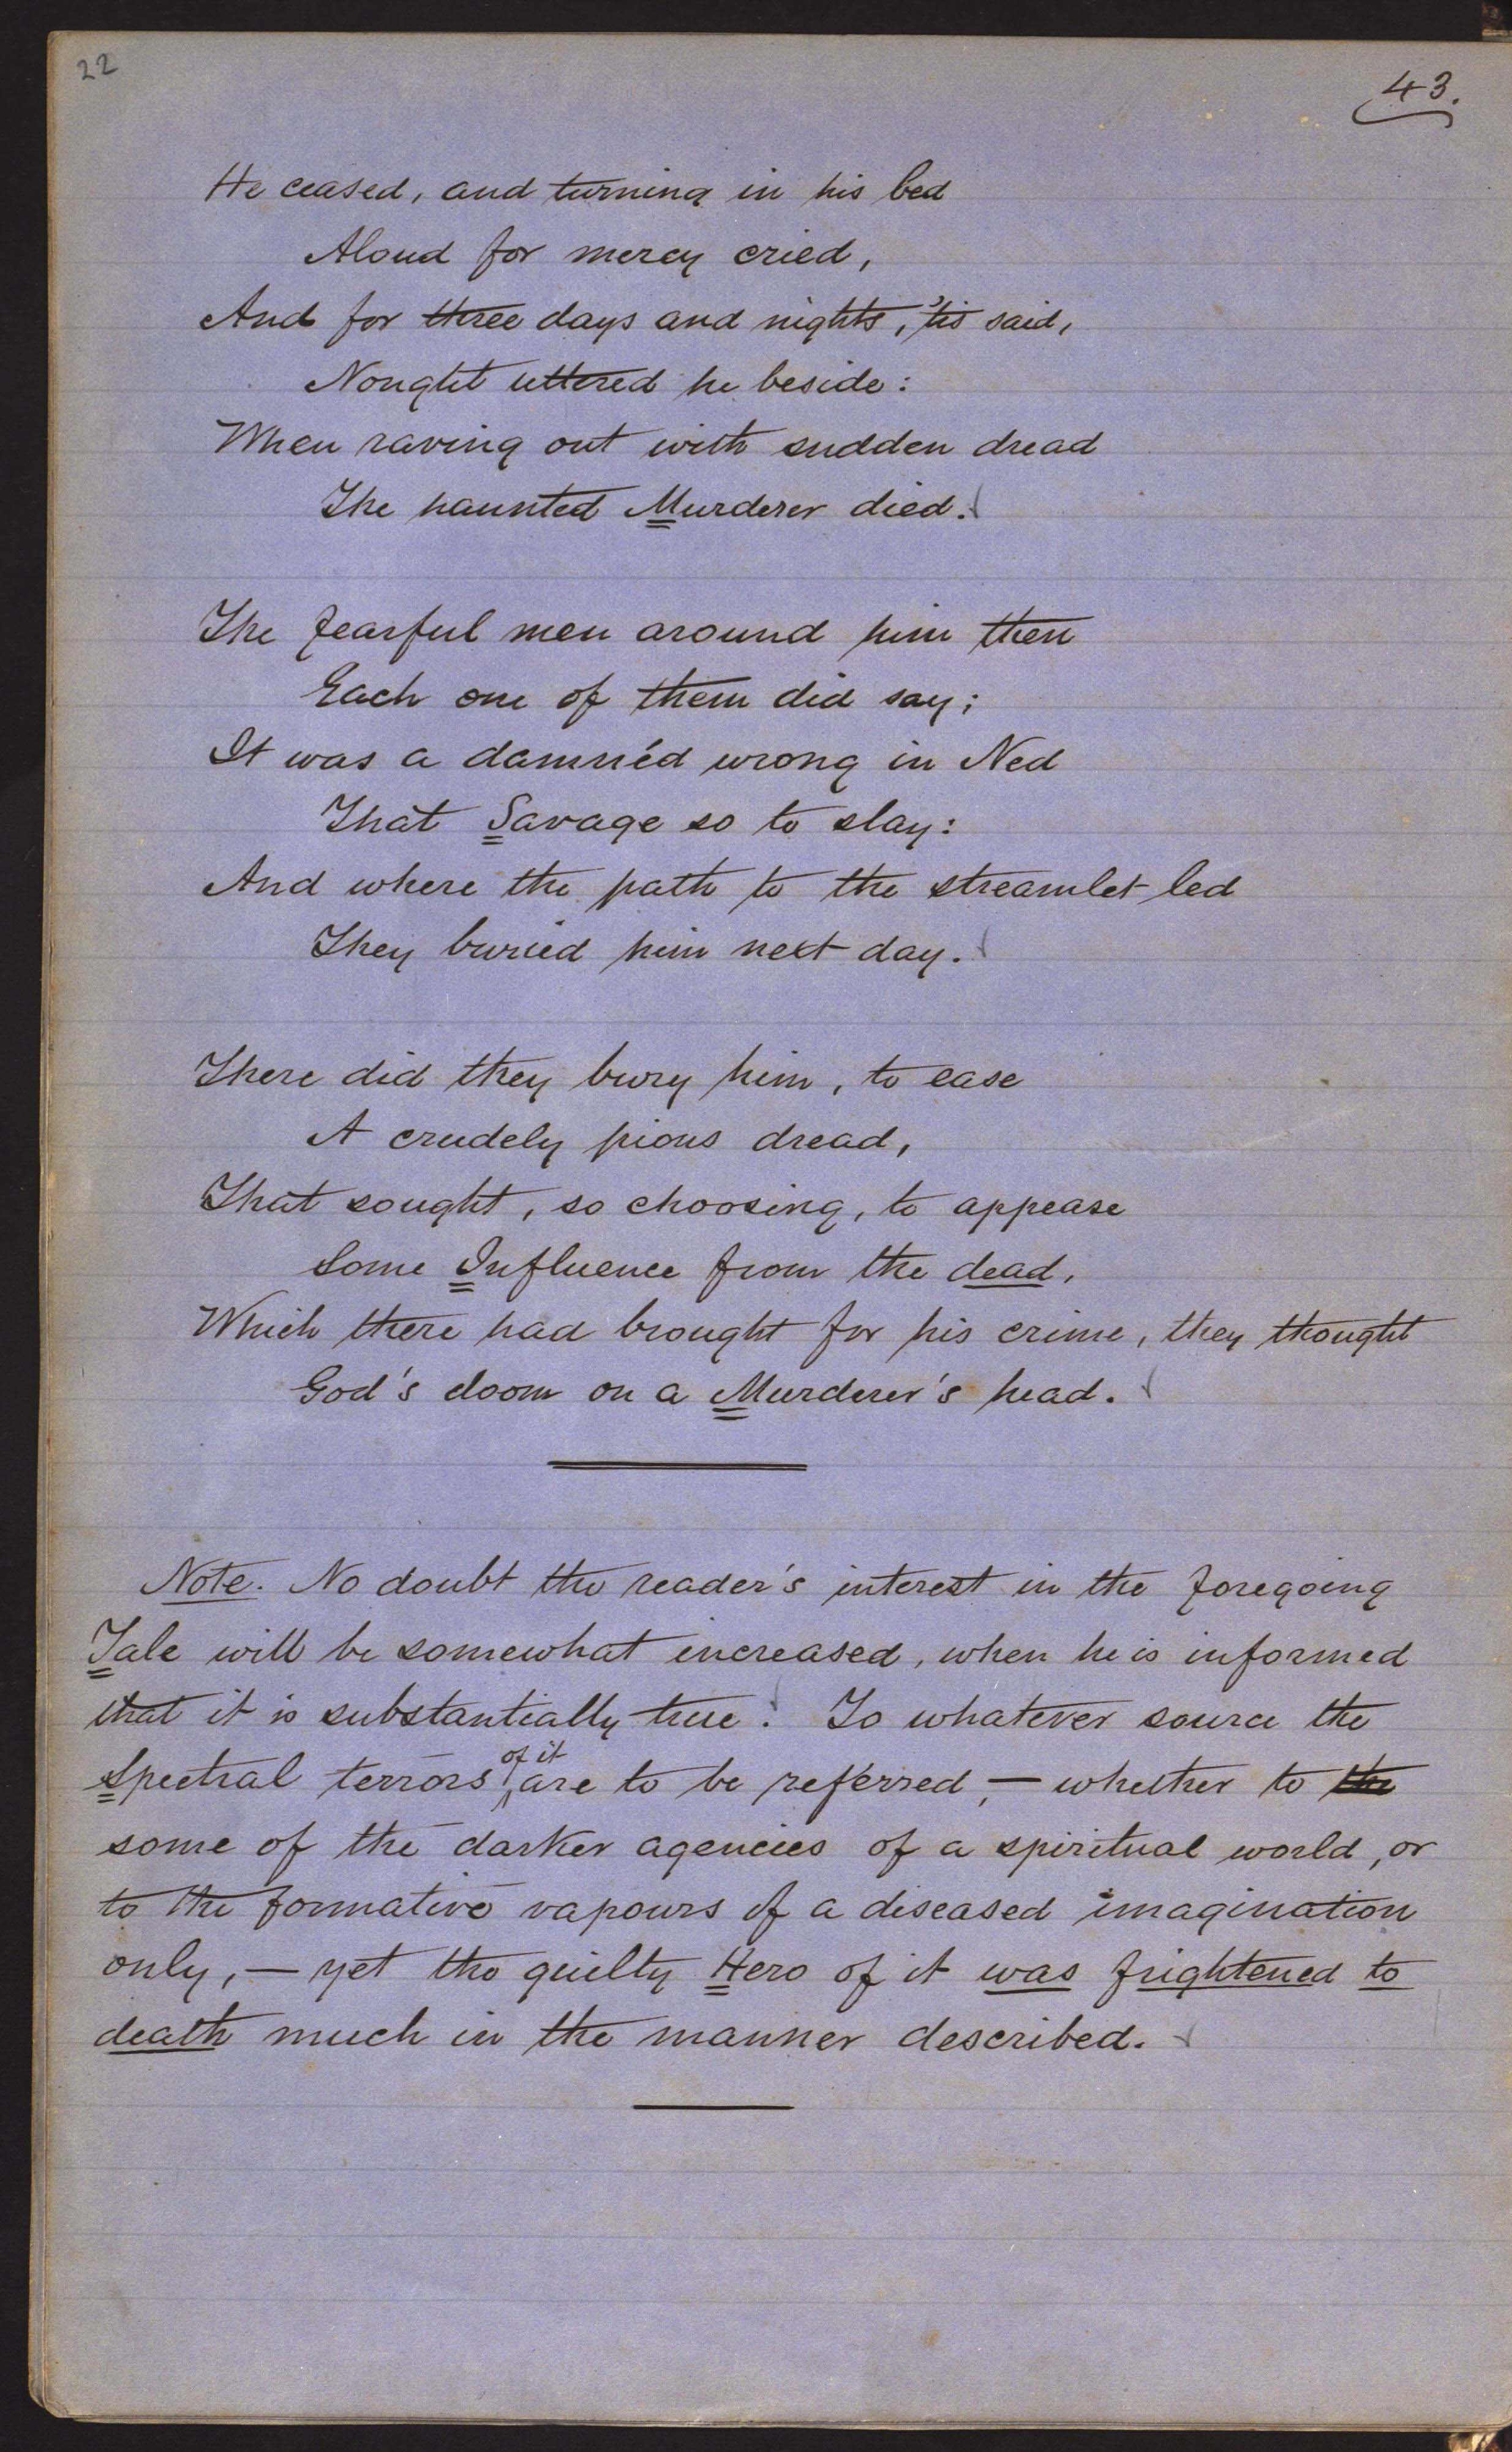 22
43.
He ceased, and turning in his bed
Aloud for mercy cried,
And for three days and nights, 'tis said,
Nought uttered he beside:
When raving out with sudden dread
The haunted Murderer died.
The fearful men around him then
Each one of them did say;
It was a damnéd wrong in Ned
That Savage so to slay:
And where the path to the streamlet led
They buried him next day.
There did they bury him, to ease
A crudely pious dread,
That sought, so choosing, to appease
Some Influence from the dead,
Which there had brought for his crime, they thought
God's doom on a Murderer's head.
Note. No doubt the reader's interest in the foregoing
Tale will be somewhat increased, when he is informed
that it is substantially true. To whatever source the
Spectral terrors of it are to be referred, — whether to the
some of the darker agencies of a spiritual world, or
to the formative vapours of a diseased imagination
only, — yet the guilty Hero of it was frightened to
death much in the manner described.